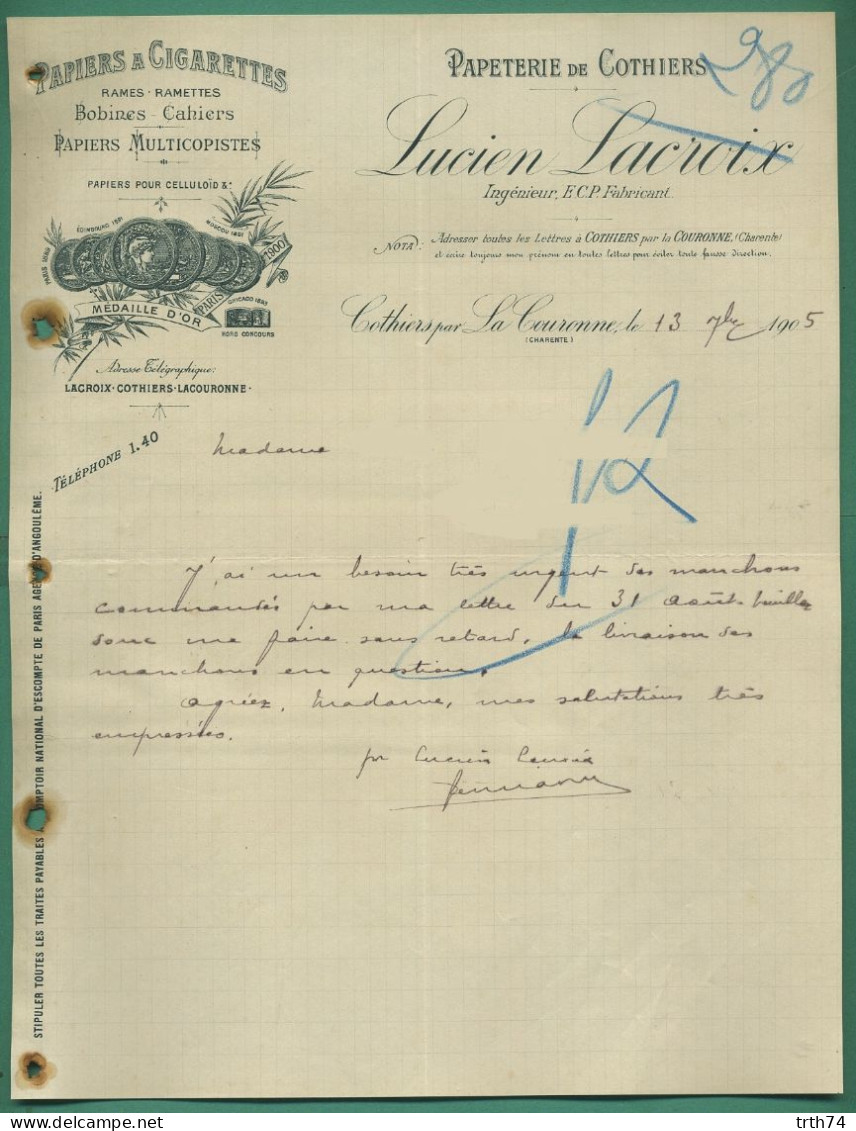 PAPIERS A CIGARETTES
RAMES - RAMETTES
Bobines - Cahiers
PAPIERS MULTICOPISTES
PAPIERS POUR CELLULOÏD &ᵃ
EDINBOURG 1891
MOSCOU 1891
PARIS 1889
1900
PARIS
MÉDAILLE D'OR
CHICAGO 1893
HORS CONCOURS
Adresse Télégraphique:
LACROIX-COTHIERS-LACOURONNE.
TÉLÉPHONE 1.40
STIPULER TOUTES LES TRAITES PAYABLES COMPTOIR NATIONAL D'ESCOMPTE DE PARIS AGENCE D'ANGOULÊME.
PAPETERIE DE COTHIERS
980
Lucien Lacroix
Ingénieur, E.C.P. Fabricant.
NOTA: Adresser toutes les Lettres à COTHIERS par la COURONNE, (Charente)
et écrire toujours mon prénom en toutes lettres pour éviter toute fausse direction.
Cothiers par La Couronne, le 13 7bre 1905
(CHARENTE)
Madame
J'ai un besoin très urgent des manchons
commandés par ma lettre du 31 août. Veuillez
donc me faire sans retard, la livraison des
manchons en question.
Agréez, Madame, mes salutations très
empressées.
pr Lucien Lacroix
trth74